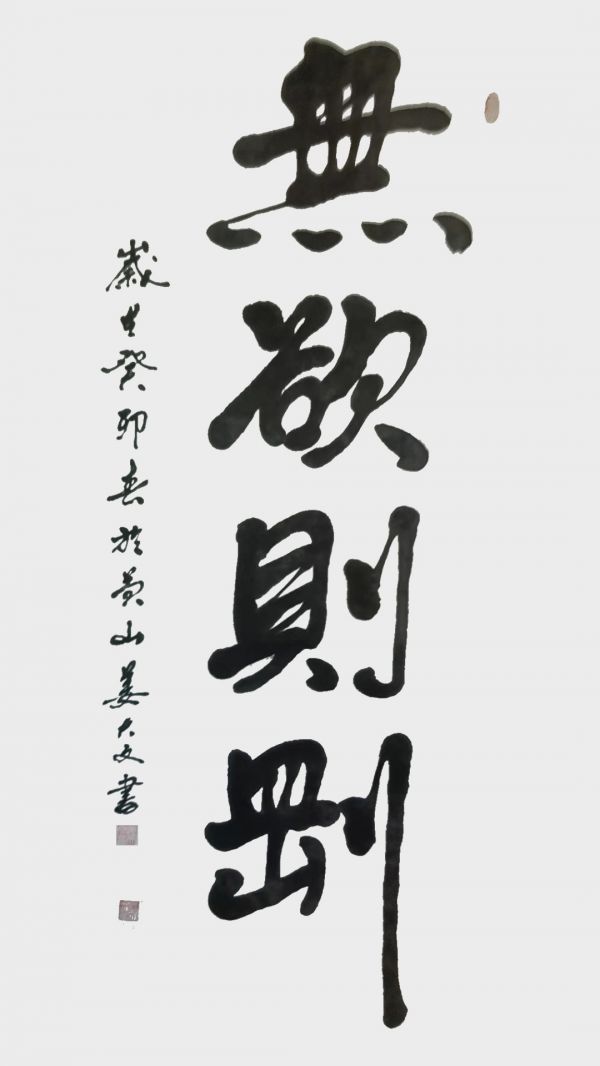 無欲則剛
歲在癸卯春於黃山姜大文書